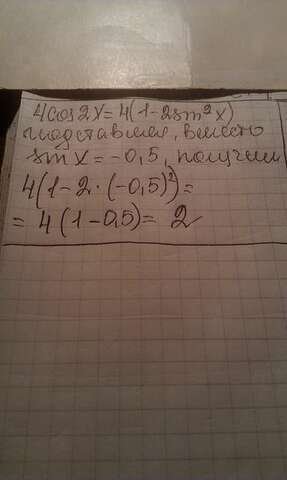 4cos2x=4(1-2sin²x)
подставляя, вместо
sin x = -0,5, получим
4(1-2·(-0,5)²)=
= 4(1-0,5)= 2